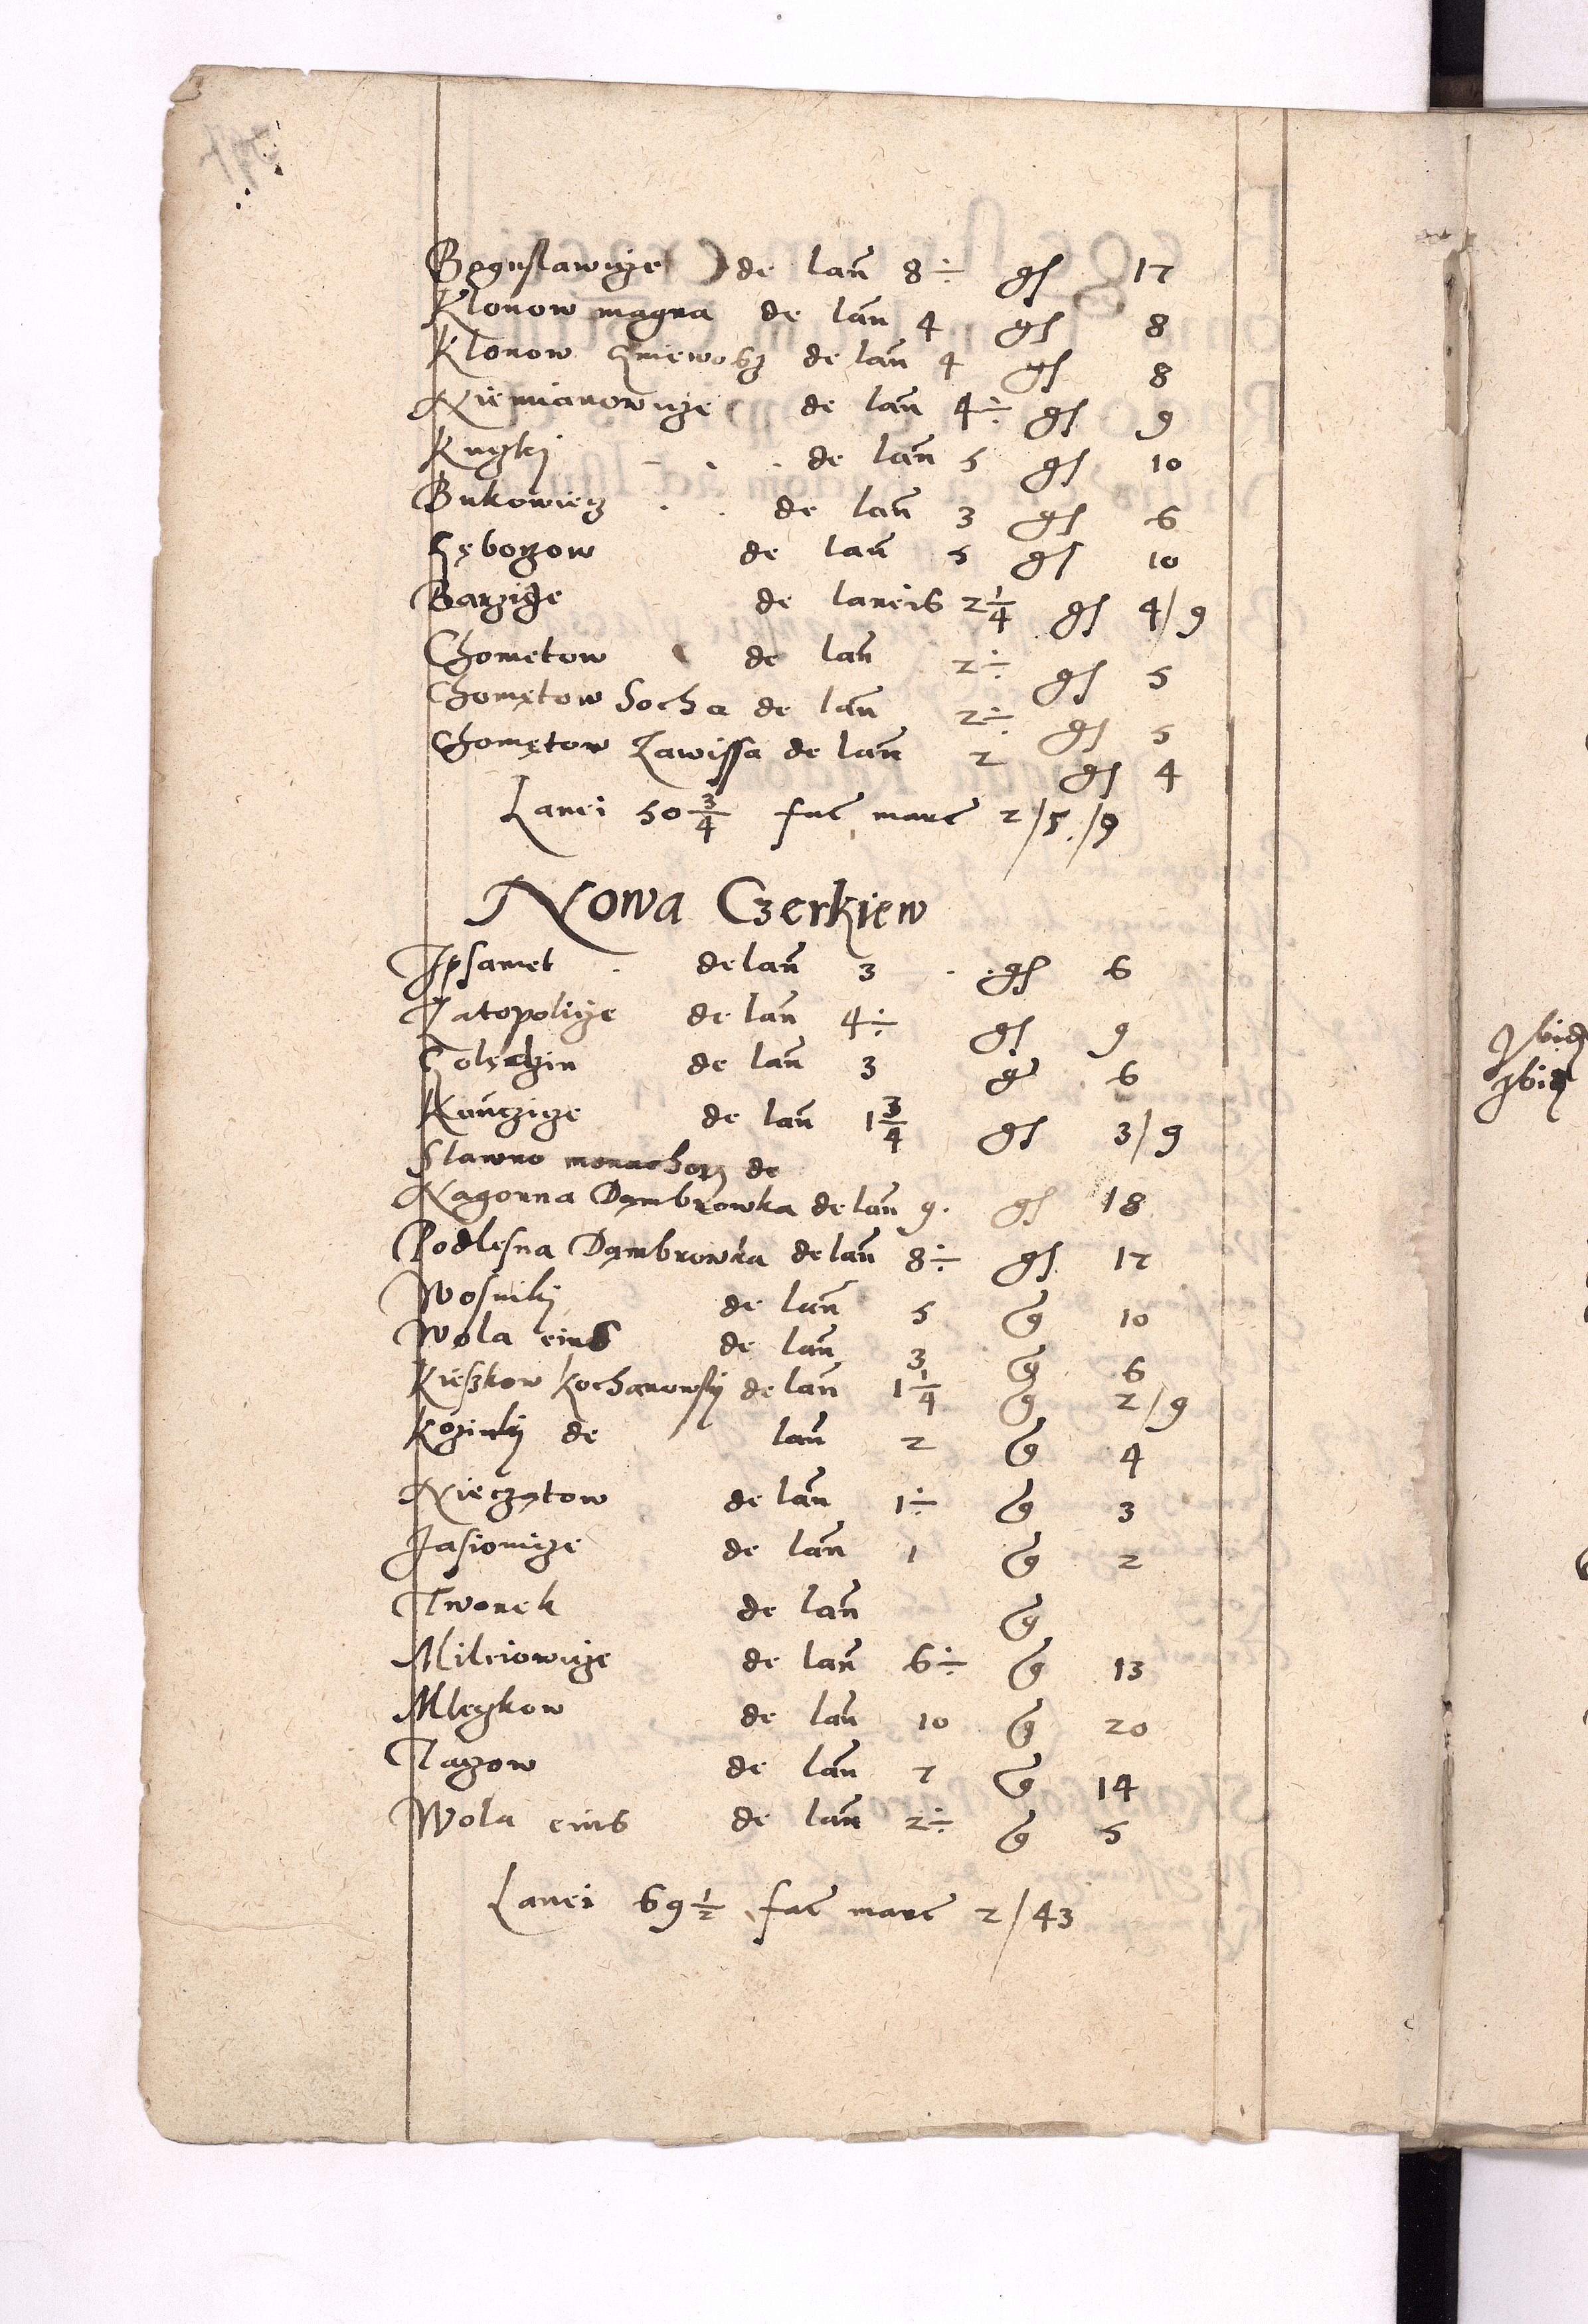 Boguslawicze de lan 8÷ gs 17
Klonow magna de lan 4 gs 8
Klonow Gniewosz de lan 4 gs 8
Niemianowicze de lan 4÷ gs 9
Kuczki de lan 5 gs 10
Bukowiecz de lan 3 gs 6
Gębarzow de lan 5 gs 10
Barzicze de laneis 2 1/4 gs 4/9
Chomętow de lan 2÷ gs 5
Chomętow Socha de lan 2÷ gs 5
Chomętow Zawissa de lan 2 gs 4
Lanei 50 3/4 fac marc 2/5/9
Nowa Czerkiew
Ipsamet de lan 3 gs 6
Zatopolicze de lan 4÷ gs 9
Golędzin de lan 3 g 6
de lan 1 3/4 gs 3/9
Slawno monachorum de
Nagorna Dąmbrowka de lan 9 gs 18
Podlesna Dąmbrowka de lan 8÷ gs 17
Wosniki de lan 5 g 10
Wola eius de lan 3 g 6
Kieszkow Kochanowsky de lan 1 1/4 g 2/9
Kozinki de lan 2 g 4
Nieczątow de lan 1÷ g 3
Jasionicze de lan 1 g 2
Tworek de lan g
Mileiowicze de lan 6÷ g 13
Mleczkow de lan 10 g 20
Taczow de lan 7 g 14
Wola eius de lan 2÷ g 5
Lanei 69 1/2 fac marc 2/43